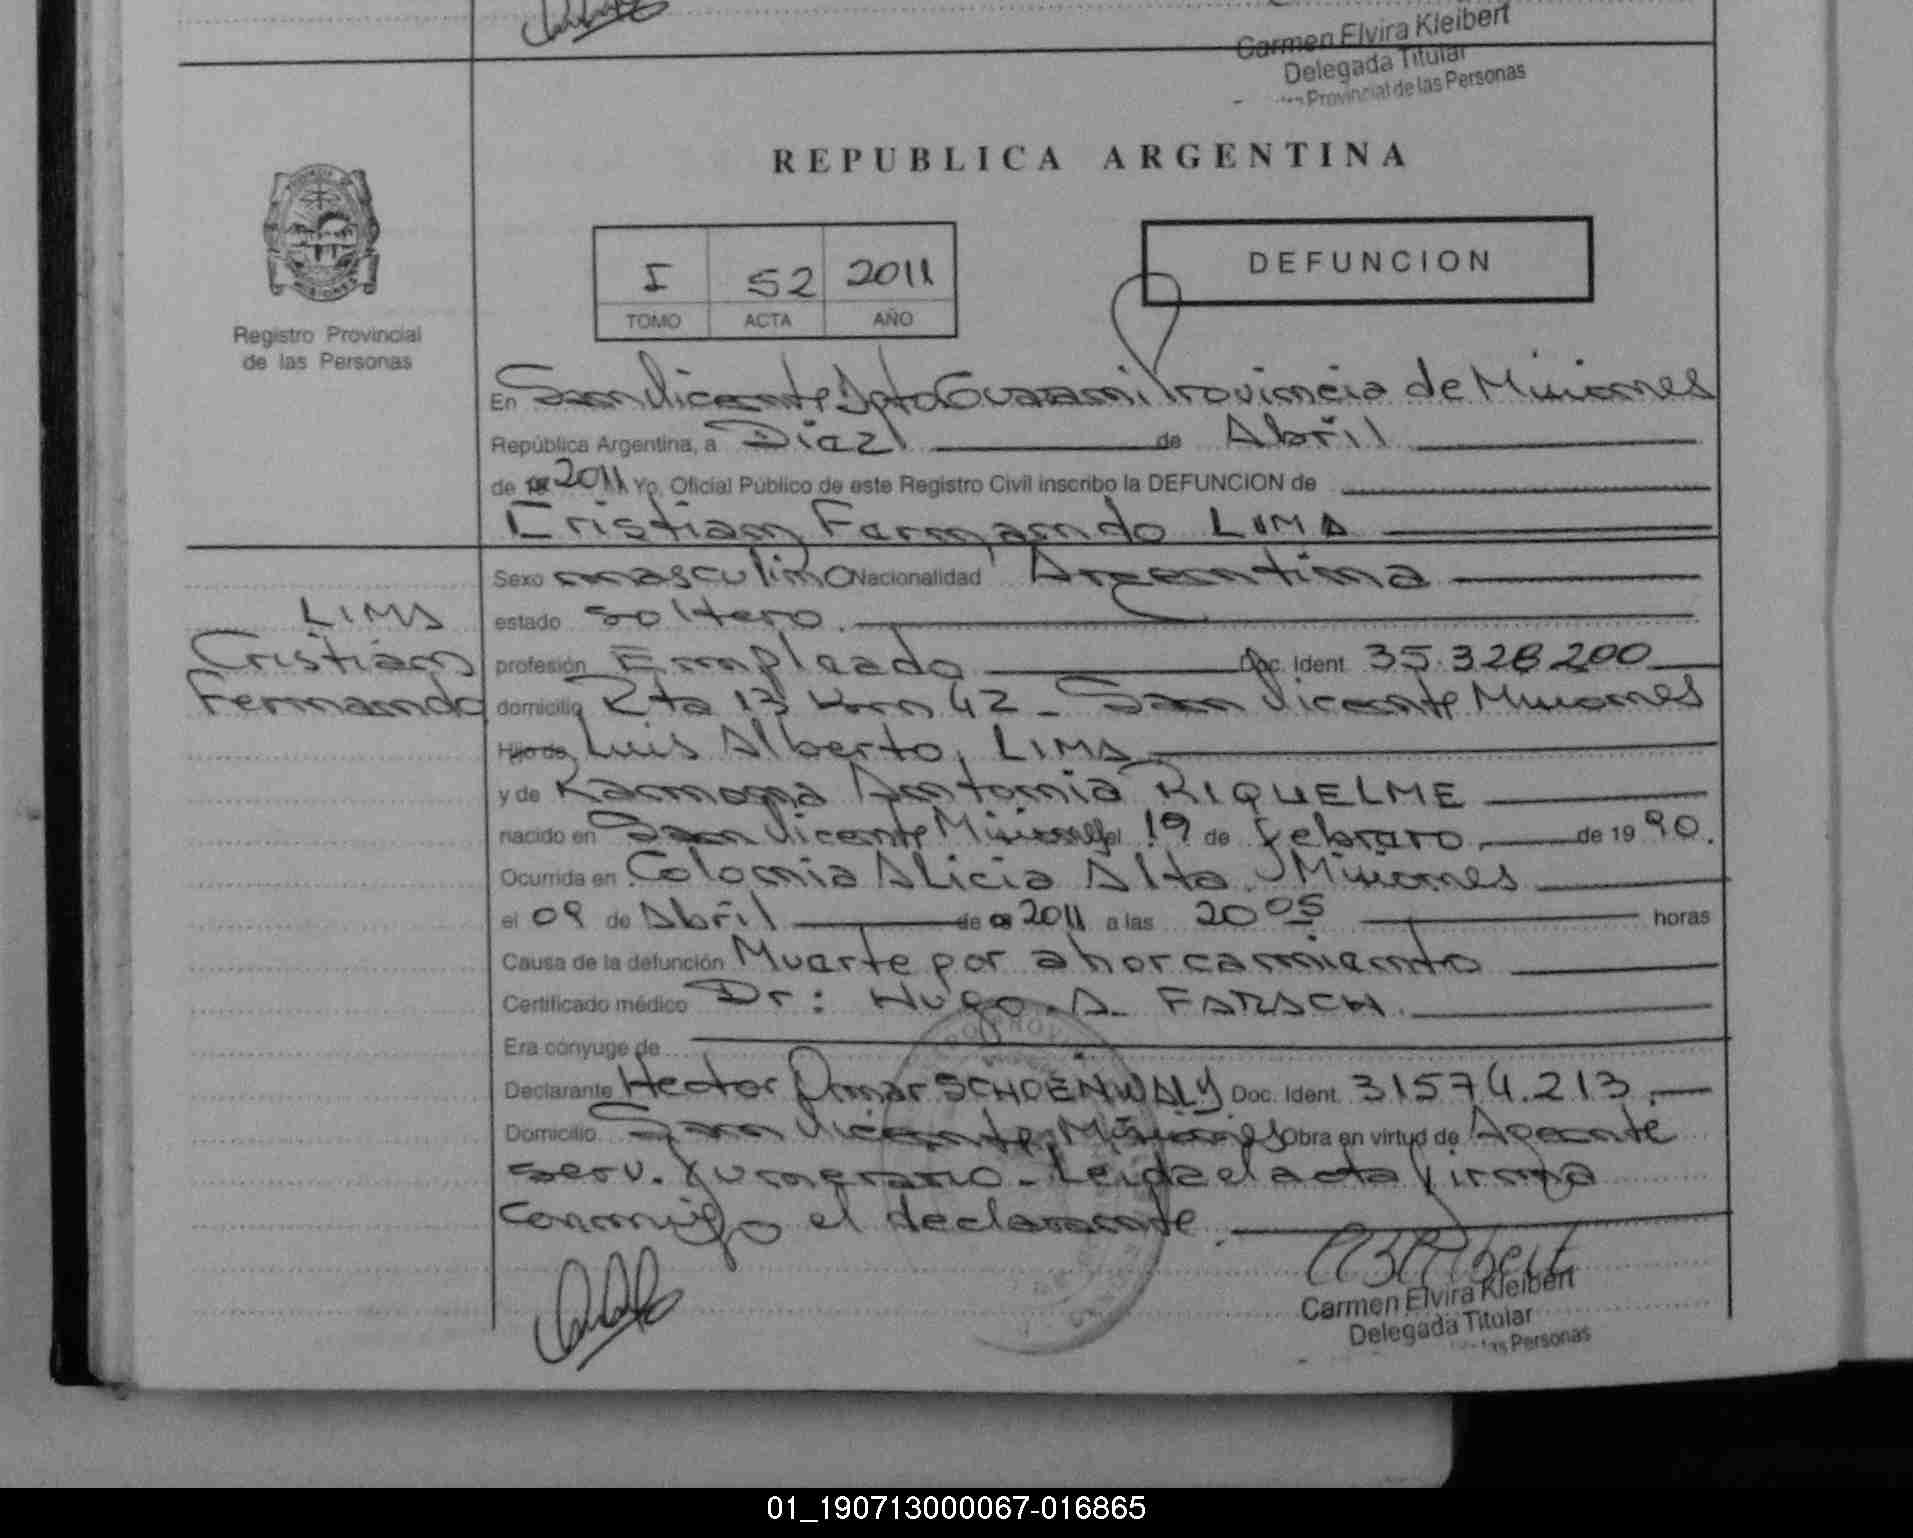 Carmen Elvira Kleibert
Delegada Titular
Provincial de las Personas
REPUBLICA ARGENTINA
I 52 2011
TOMO ACTA AÑO
DEFUNCION
Registro Provincial
de las Personas
En San Vicente Dpto Guarani Provincia de Misiones
República Argentina, a Diez de Abril
de 2011 Yo, Oficial Público de este Registro Civil inscribo la DEFUNCION de
Cristian Fernando LIMA
Sexo masculino Nacionalidad Argentina
estado soltero.
LIMA
Cristian
Fernando
profesión Empleado Doc. Ident. 35.328.200
domicilio Rta 13 Km 42 - San Vicente Misiones
Hijo de Luis Alberto, LIMA
y de Ramona Antonia RIQUELME
nacido en San Vicente Misiones el 19 de febrero de 1990.
Ocurrida en Colonia Alicia Alta Misiones
el 09 de Abril de 2011 a las 20 05 horas
Causa de la defunción Muerte por ahorcamiento
Certificado médico Dr: Hugo A. FARSCH.
Era cónyuge de
Declarante Hector Omar SCHOENWALY Doc. Ident. 31574.213.
Domicilio San Vicente, Misiones Obra en virtud de Agente
serv. funerario - Leida el acta firma
conmigo el declarante.
Carmen Elvira Kleibert
Delegada Titular
las Personas
01_190713000067-016865